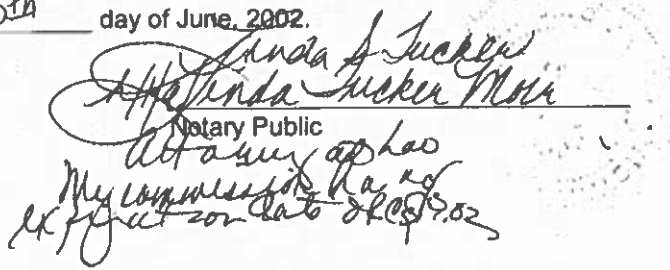 day of June, 2002.
Linda S Tucker
Linda Tucker Moir
Notary Public
Attorney
My commission has no
expiration date ORC §147.03